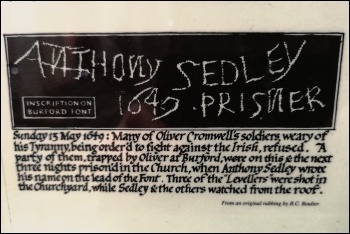 ANTHONY SEDLEY
1649 · PRISNER
INSCRIPTION ON
BURFORD FONT
Sunday 13 May 1649: Many of Oliver Cromwell's soldiers, weary of
his Tyranny, being order'd to fight against the Irish, refused. A
party of them, trapped by Oliver at Burford, were on this & the next
three nights prison'd in the Church, when Anthony Sedley wrote
his name on the lead of the Font. Three of the 'Levellers' were shot in
the Churchyard, while Sedley & the others watched from the roof.
From an original rubbing by B.C. Boulter